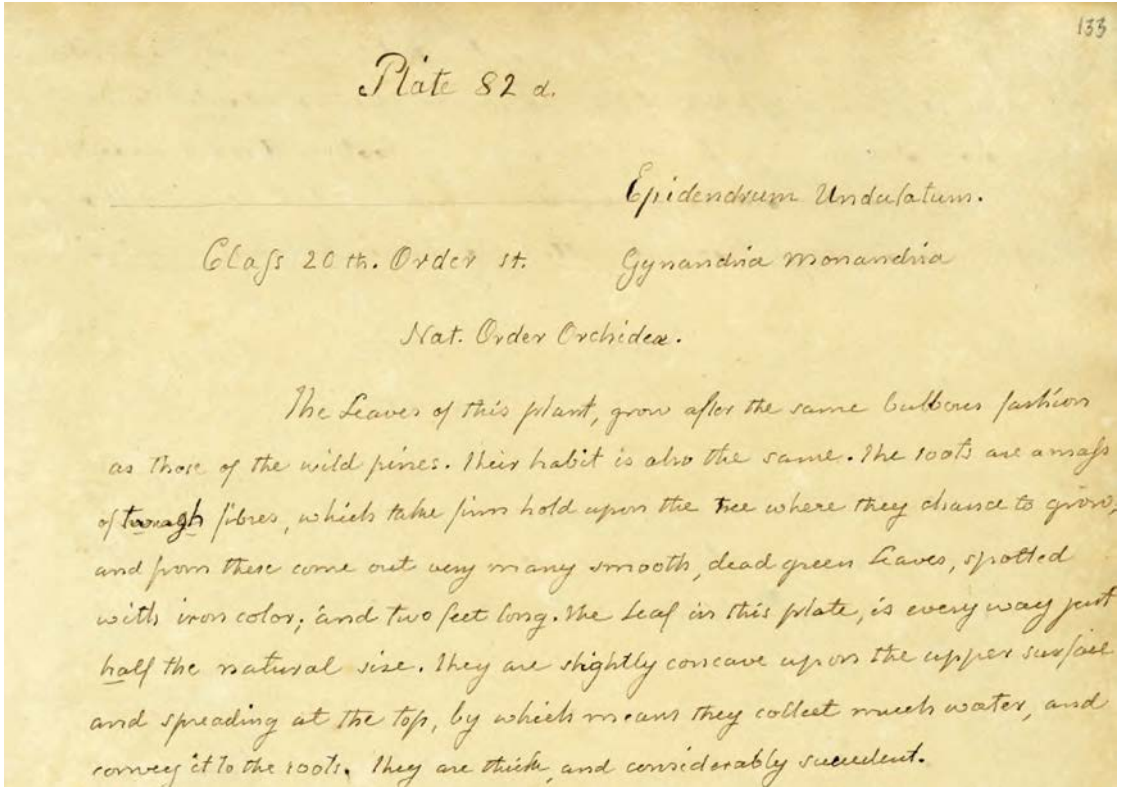 133
Plate 82 d.
Epidendrum Undulatum.
Claſs 20th. Order st. Gynandria Monandria
Nat. Order Orchideæ.
The Leaves of this plant, grow after the same bulbous fashion
as those of the wild pines. Their habit is also the same. The roots are a maſs
of tough fibres, which take firm hold upon the tree where they chance to grow,
and from these come out very many smooth, dead green Leaves, spotted
with iron color; and two feet long. The Leaf in this plate, is every way just
half the natural size. They are slightly concave upon the upper surface
and spreading at the top, by which means they collect much water, and
convey it to the roots. They are thick, and considerably succulent.